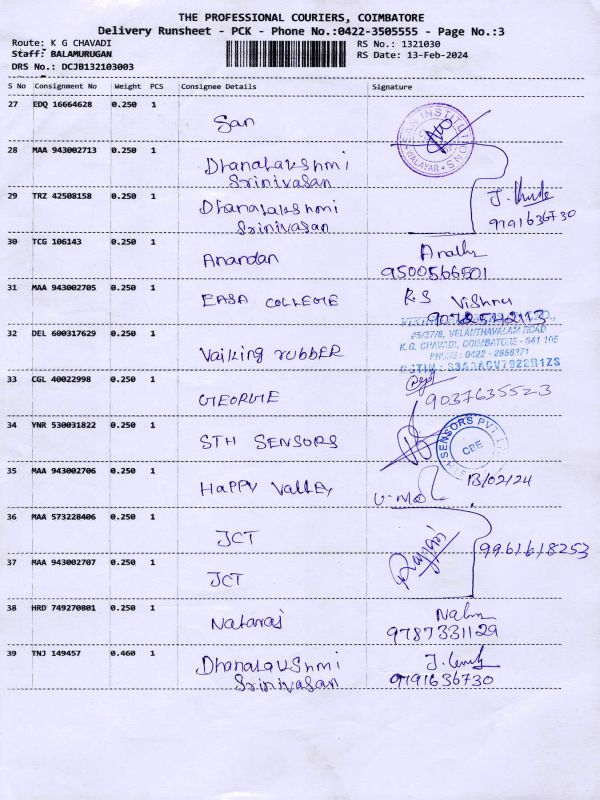 THE PROFESSIONAL COURIERS, COIMBATORE
Delivery Runsheet - PCK - Phone No.:0422-3505555 - Page No.:3
Route: K G CHAVADI
RS No.: 1321030
Staff: BALAMURUGAN
RS Date: 13-Feb-2024
DRS No.: DCJB132103003
S No Consignment No Weight PCS Consignee Details Signature
27 EDQ 16664628 0.250 1
San
28 MAA 943002713 0.250 1
Dhanalakshmi
Srinivasan
29 TRZ 42508158 0.250 1
Dhanalakshmi
Srinivasan
9791636730
30 TCG 106143 0.250 1
Anandan
9500566501
31 MAA 943002705 0.250 1
EASA COLLEGE
R.S Vishnu
32 DEL 600317629 0.250 1
Vaiking rubber
#5/37/8, VELANTHAVALAM ROAD
K.G. CHAVADI, COIMBATORE - 641 105
PHONE : 0422 - 2656371
33 CGL 40022998 0.250 1
GEORGE
9037635523
34 YNR 530031822 0.250 1
STH SENSORS
SENSORS PVT
CBE
13/02/24
35 MAA 943002706 0.250 1
Happy Valley
36 MAA 573228406 0.250 1
JCT
9961618253
37 MAA 943002707 0.250 1
JCT
38 HRD 749270801 0.250 1
Nataraj
9787331129
39 TNJ 149457 0.460 1
Dhanalakshmi
Srinivasan
9791636730